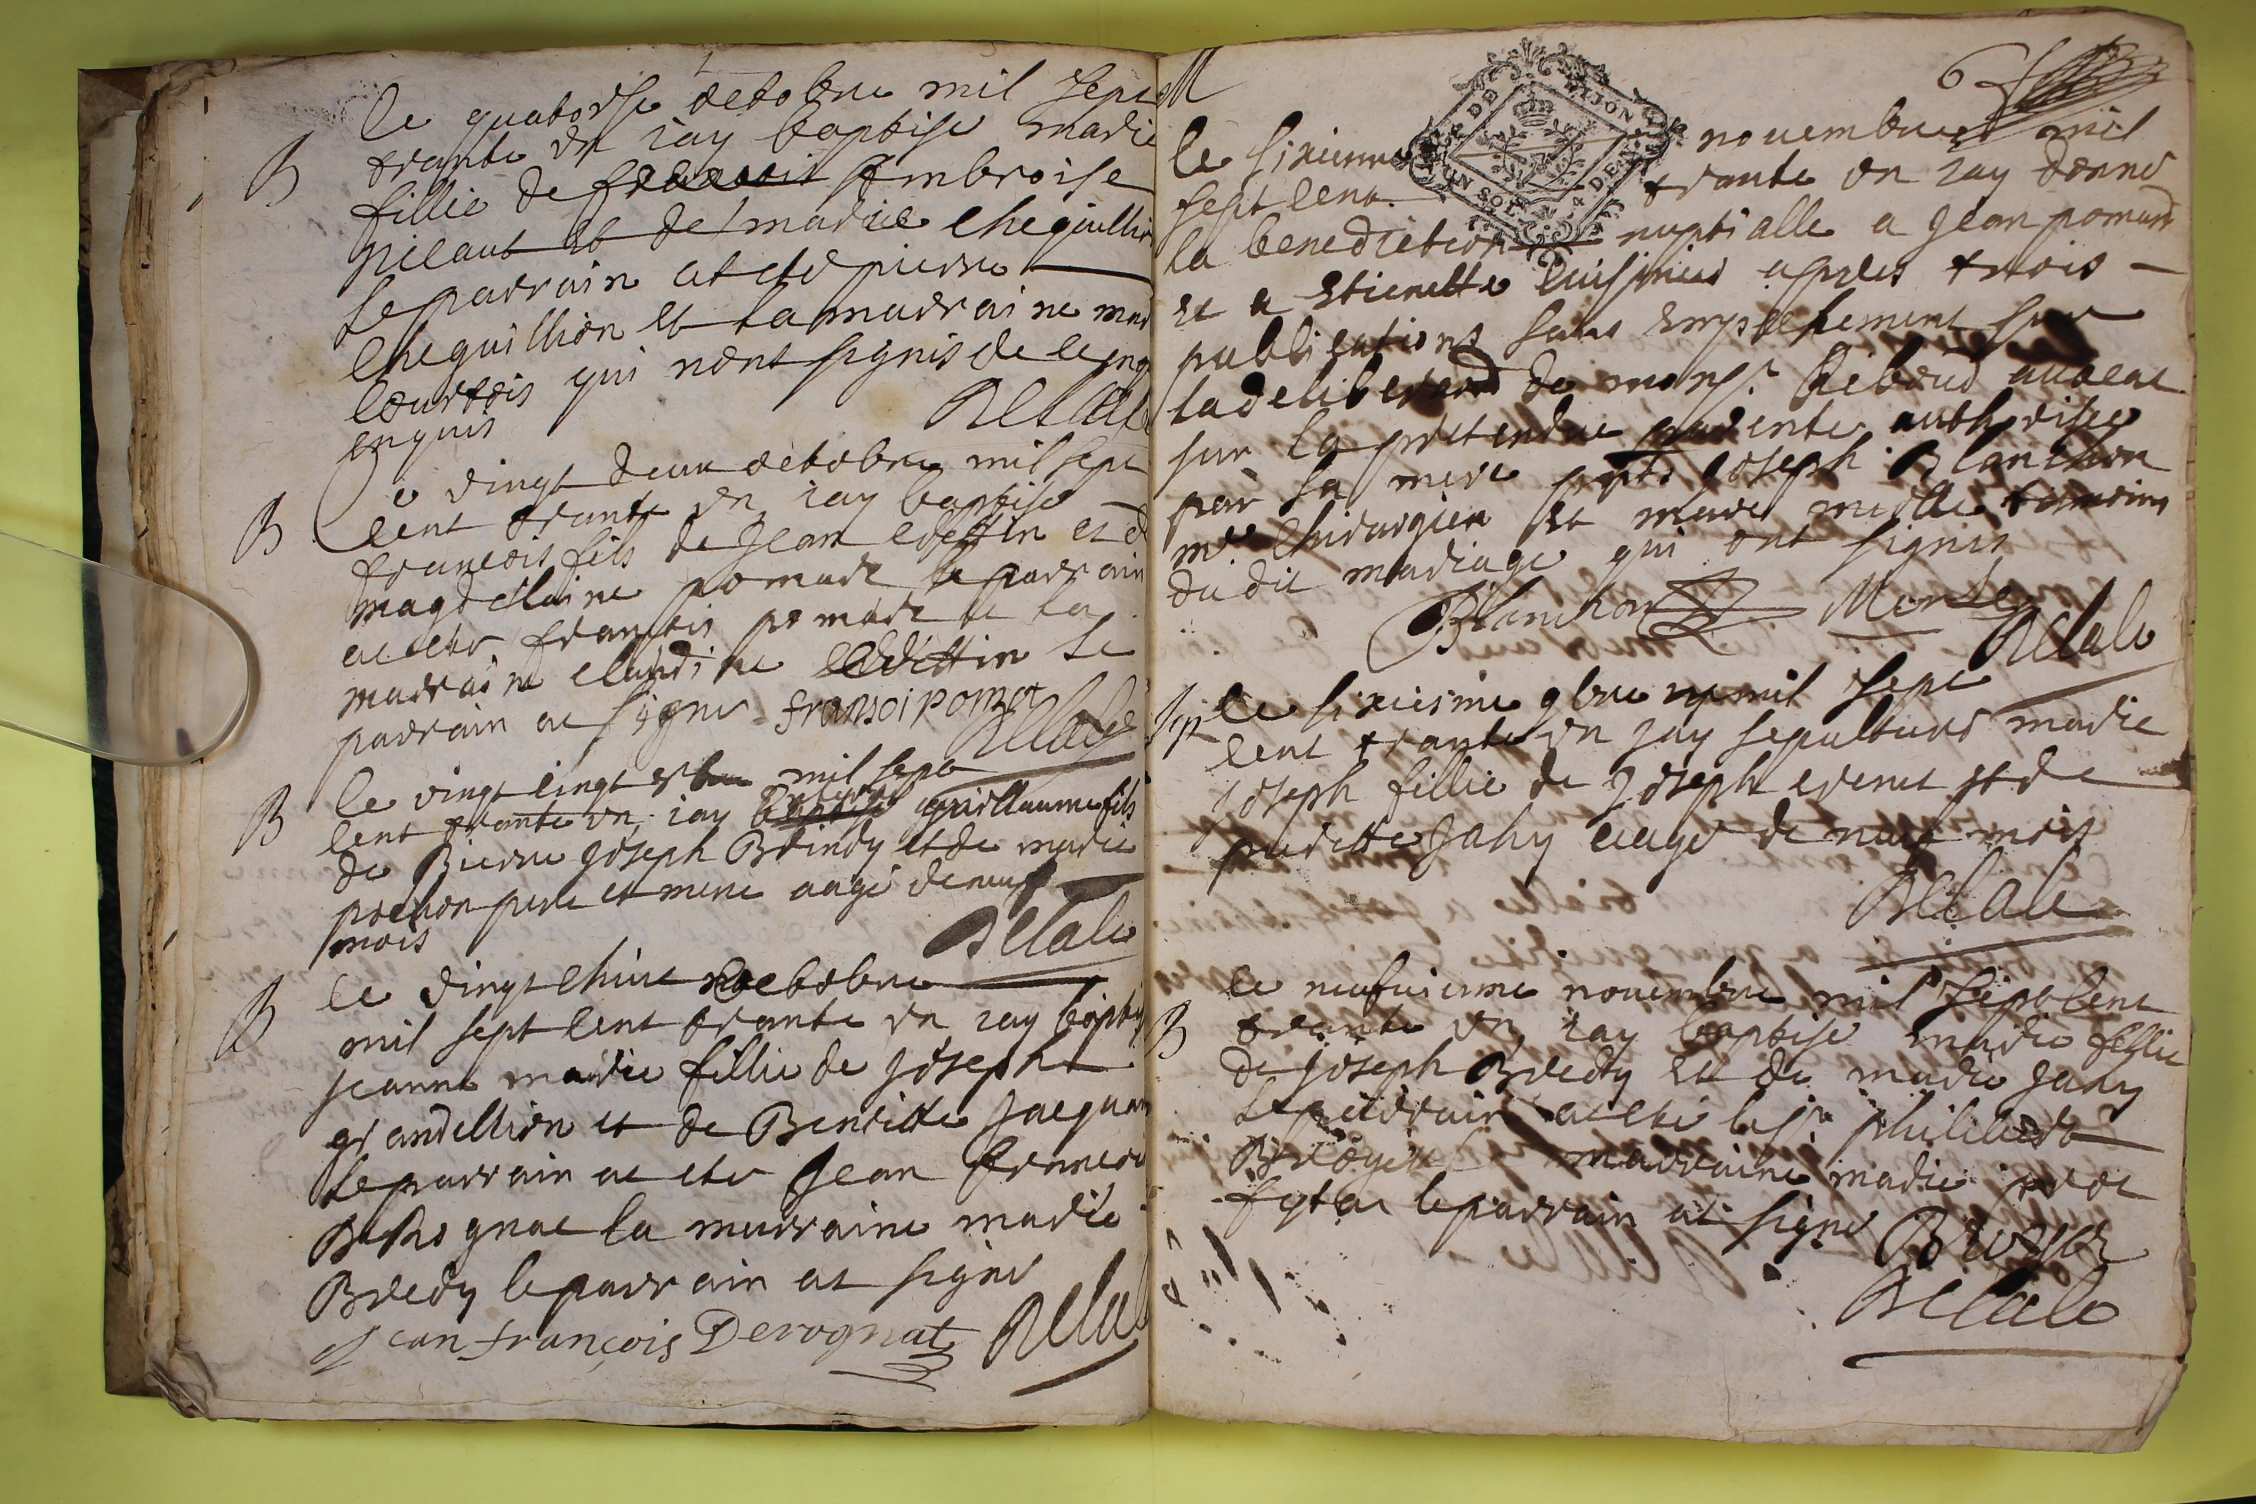 le quatorse octobre mil sept
trante un iay baptise marie
B
fillie de francois Ambroise
pilaut et de marie cheguillion
le parrain at ete pierre
cheguillion et la marraine marie
courtois qui nont signis de ce
enquis
Delale
B
Le vingt deux octobre mil sept
cent trante un iay baptise
francois fils de Jean crettin et de
magdellaine pomare le parrain
at ete francois pomare et la
marraine claudine crettin le
parrain at signe fransoi pomat
Delale
B
le vingt cinqt 8bre mil sept
cent trante un iay enterré guillaume fils
de Pierre Joseph Brindy et de marie
pochon pere et mere aagé de neuf
mois
Delale
B
le vingt chint octobre
mil sept cent trante un iay baptise
jeanne marie fillie de Joseph
grandellion et de Benoitte Jacquan
le parrain at ete Jean francois
Derognat la marraine marie
Bredy le parrain at signe
Jean françois Derognat
Delale
M
6
DE DIJON
UN SOL 4 DEN
le sixieme novembre mil
sept cent trante un iay donné
la benediction nuptialle a Jean pomare
et a Etienette cuisinier apres trois
publications sans empeschement sur
la deliberaon de monsr. Reboud avocat
sur la pretendue parente authorisee
par sa mere pnts Joseph Blanchon
me chirurgien et marc merle temoins
du dit mariage qui ont signis
Blanchon Merle
Delale
Sep
le sixiesme 9bre mil sept
cent trante un jay sepulturé marie
joseph fillie de Joseph evenet et de
pierette Jany eagé de neuf mois
Delale
le neufvieme novembre mil sept cent
B
trante un iay baptise marie fillie
de Joseph Bredy et de marie Jany
le parrain at ete le sr. philibert
Broyer marraine marie
le parrain at signe Broyer
Delale